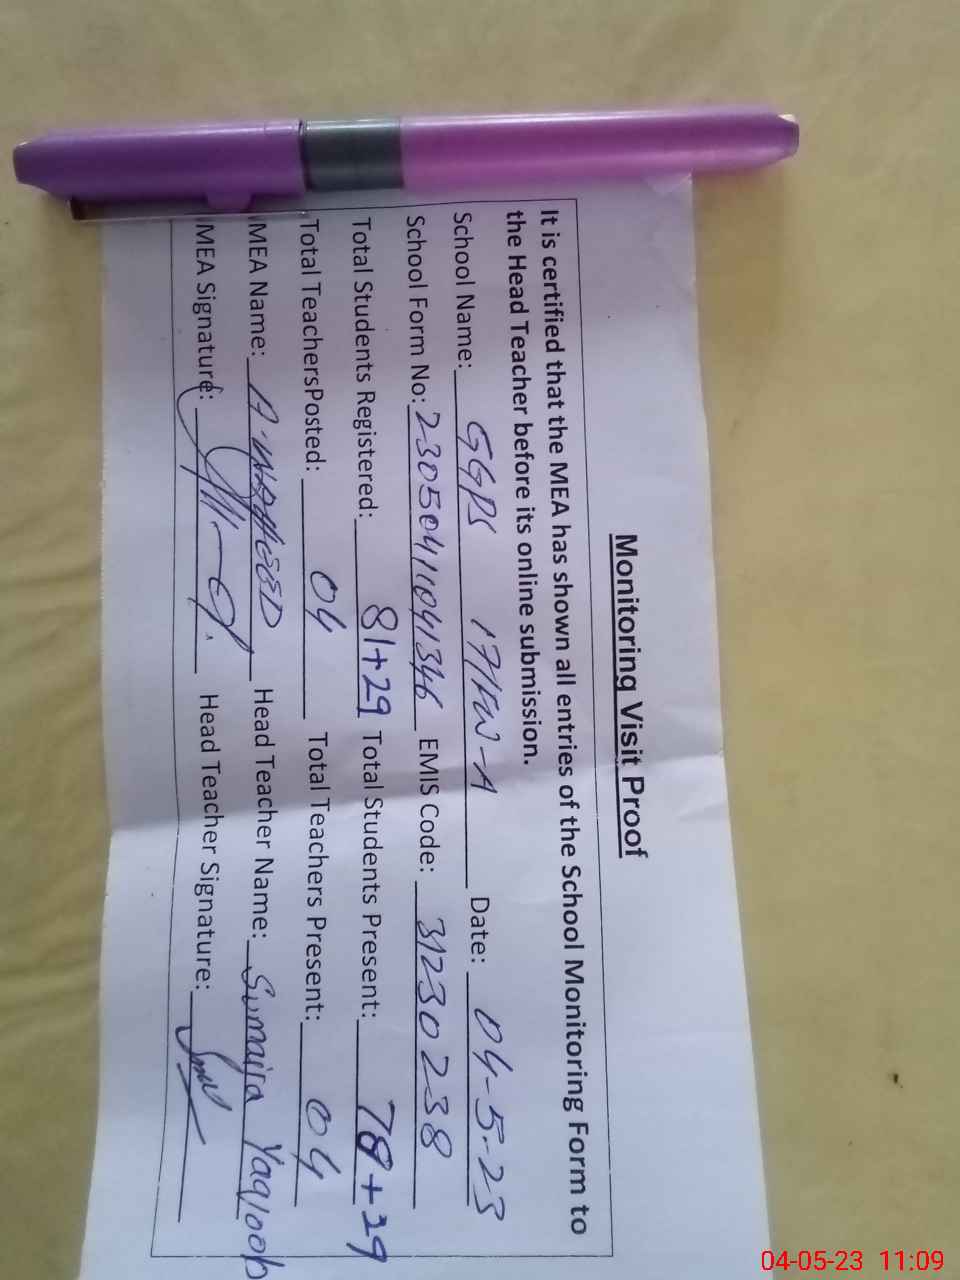 Monitoring Visit Proof
It is certified that the MEA has shown all entries of the School Monitoring Form to
the Head Teacher before its online submission.
School Name: GGPS 171KW-A Date: 04-5-23
School Form No: 23050411041346 EMIS Code: 31230238
Total Students Registered: 81+29 Total Students Present: 78+29
Total TeachersPosted: 04 Total Teachers Present: 04
MEA Name: A. WAHEED Head Teacher Name: Sumaira Yaqloob
MEA Signature: Head Teacher Signature:
04-05-23 11:09